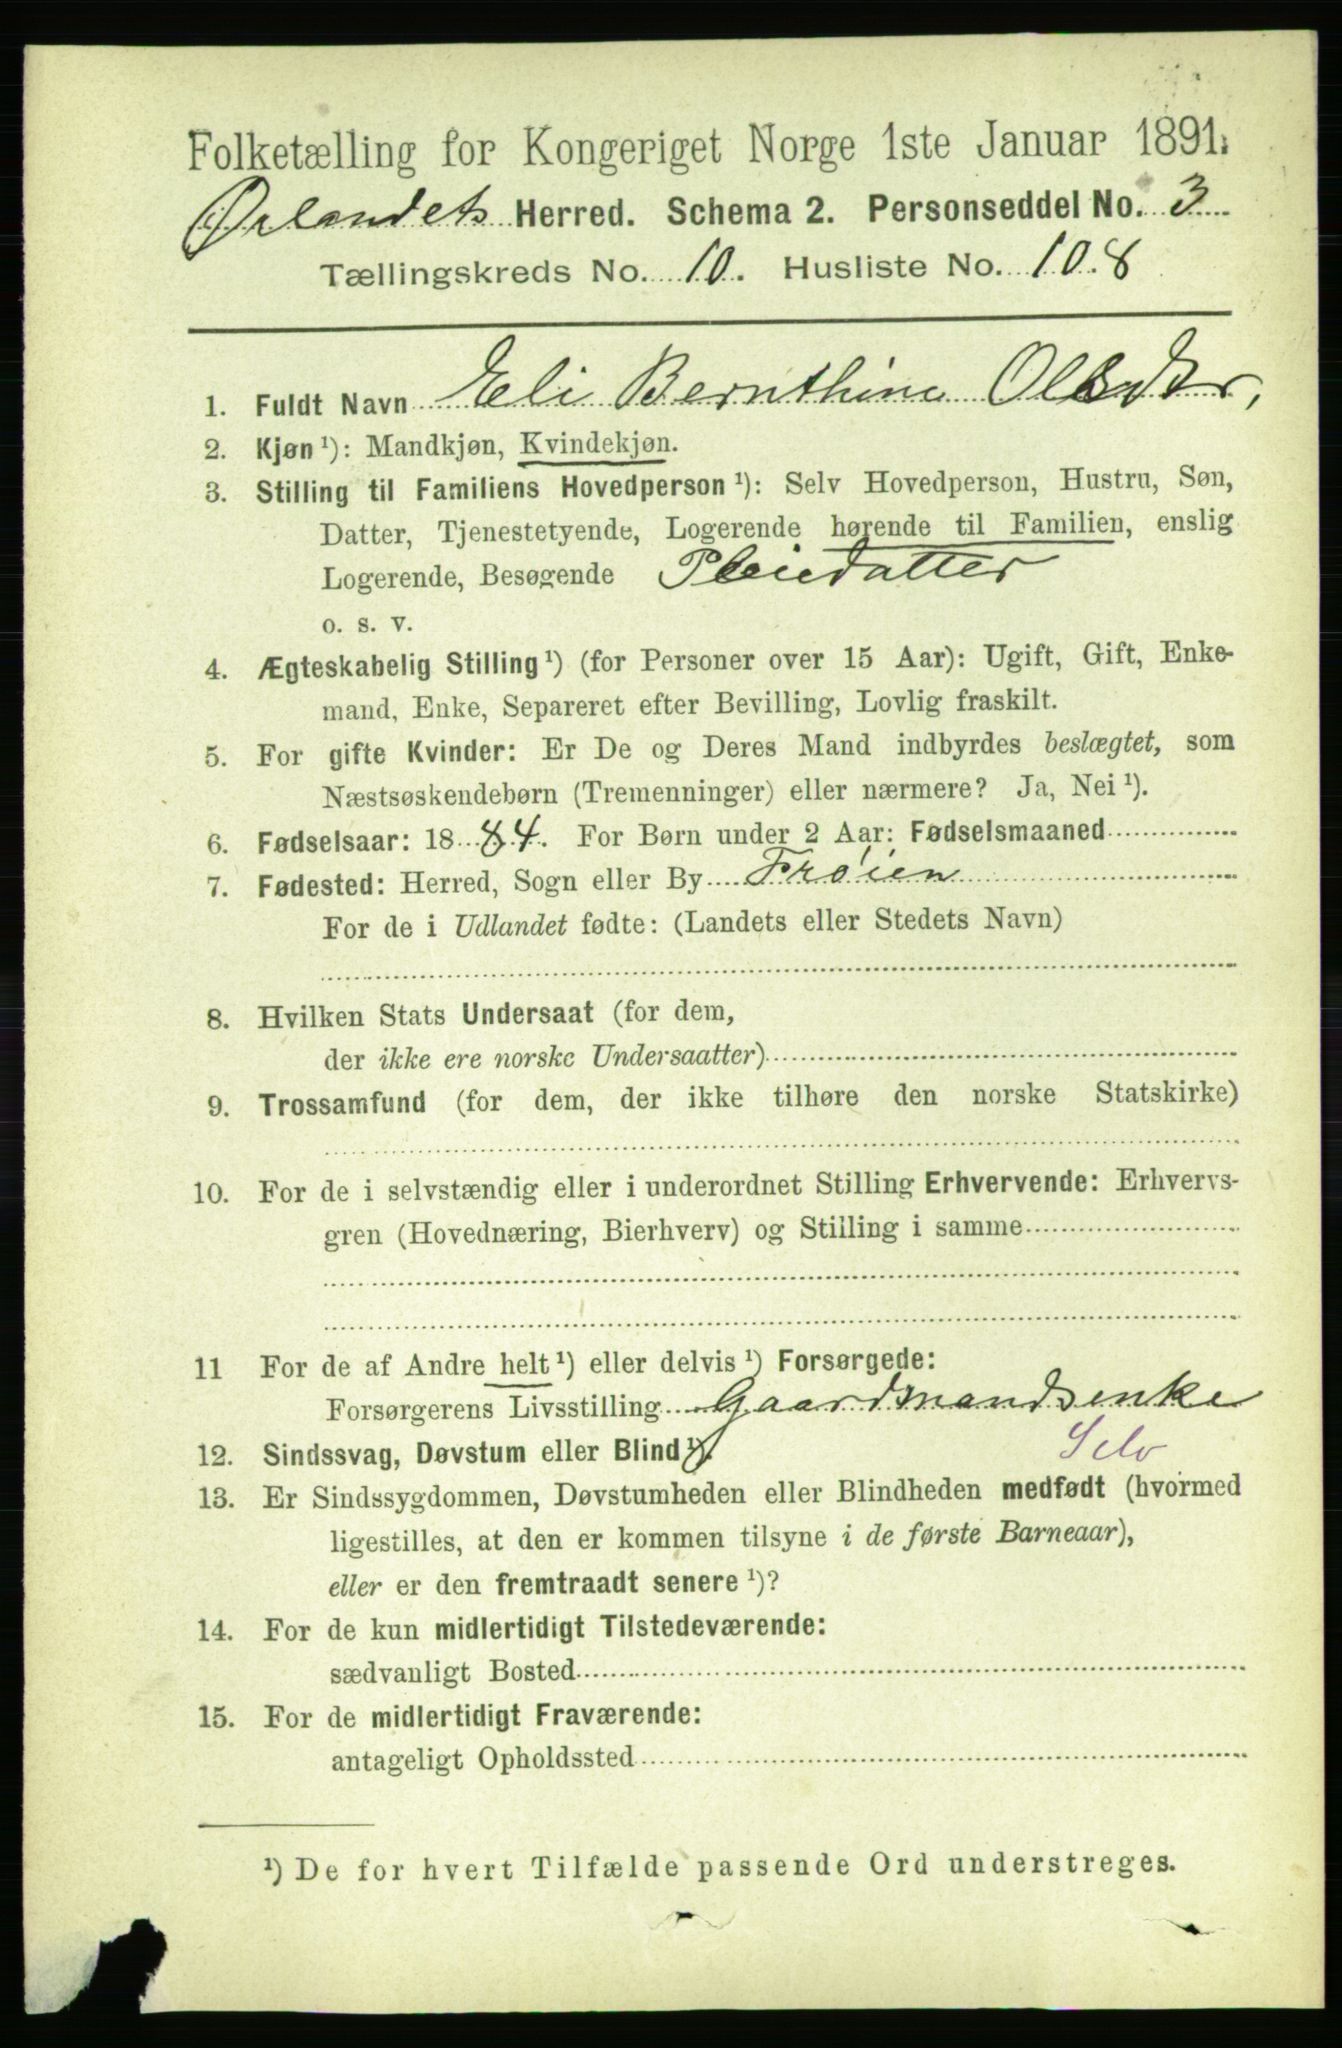 Folketælling for Kongeriget Norge 1ste Januar 1891.
Ørlandets Herred. Schema 2. Personseddel No. 3
Tællingskreds No. 10. Husliste No. 108
1. Fuldt Navn Eli Bernthine Olsdtr,
2. Kjøn ¹): Mandkjøn, Kvindekjøn.
3. Stilling til Familiens Hovedperson ¹): Selv Hovedperson, Hustru, Søn,
Datter, Tjenestetyende, Logerende hørende til Familien, enslig
Logerende, Besøgende Pleiedatter
o. s. v.
4. Ægteskabelig Stilling ¹) (for Personer over 15 Aar): Ugift, Gift, Enke-
mand, Enke, Separeret efter Bevilling, Lovlig fraskilt.
5. For gifte Kvinder: Er De og Deres Mand indbyrdes beslægtet, som
Næstsøskendebørn (Tremenninger) eller nærmere? Ja, Nei ¹).
6. Fødselsaar: 1884. For Børn under 2 Aar: Fødselsmaaned
7. Fødested: Herred, Sogn eller By Frøien
For de i Udlandet fødte: (Landets eller Stedets Navn)
8. Hvilken Stats Undersaat (for dem,
der ikke ere norske Undersaatter)
9. Trossamfund (for dem, der ikke tilhøre den norske Statskirke)
10. For de i selvstændig eller i underordnet Stilling Erhvervende: Erhvervs-
gren (Hovednæring, Bierhverv) og Stilling i samme
11 For de af Andre helt ¹) eller delvis ¹) Forsørgede:
Forsørgerens Livsstilling Gaardmandsenke
12. Sindssvag, Døvstum eller Blind ¹). Selv
13. Er Sindssygdommen, Døvstumheden eller Blindheden medfødt (hvormed
ligestilles, at den er kommen tilsyne i de første Barneaar),
eller er den fremtraadt senere ¹)?
14. For de kun midlertidigt Tilstedeværende:
sædvanligt Bosted
15. For de midlertidigt Fraværende:
antageligt Opholdssted
¹) De for hvert Tilfælde passende Ord understreges.